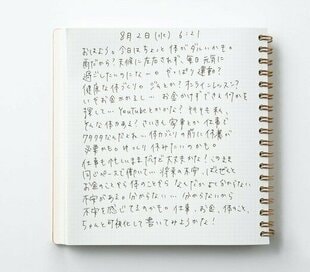 8月2日(水) 6:21
おはよう。今日はちょっと体がダルいかも。
雨だから？天候に左右されず、毎日元気に
過ごしたいのにな。やっぱり運動？
健康な体づくりのジムとか？オンラインレッスン？
いやお金かかるし… お金かけずできる何かを
探して… YouTubeとかかな？ でもでも私、
そんな体がある？さいきん家事とか仕事で
クタクタなんだもん。体力づくりの前に休養が
必要かも。ゆっくり休みたいのかも。
仕事も忙しいままだけど大丈夫かな！このまま
同じペースで働いて… 将来の不安、ばくぜんと
お金のことやら体のことやら なんだかよく分からない
不安がある。分からない… 分からないから
不安を感じてるのかも。仕事、お金、体のこと、
ちゃんと可視化して書いてみようかな！